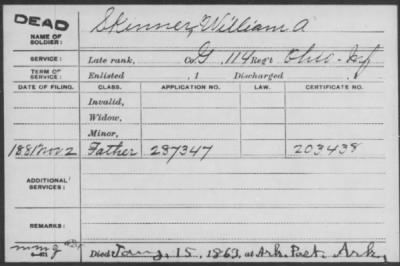 DEAD
NAME OF SOLDIER: Skinner, William A
SERVICE: Late rank, Co. G, 114 Reg't Ohio Inf
TERM OF SERVICE: Enlisted , 1 Discharged , 1
DATE OF FILING. CLASS. APPLICATION NO. LAW. CERTIFICATE NO.
Invalid,
Widow,
Minor,
1881 Nov 2 Father 287347 203438
ADDITIONAL SERVICES:
REMARKS:
Died Jany. 15, 1863, at Ark. Post. Ark,